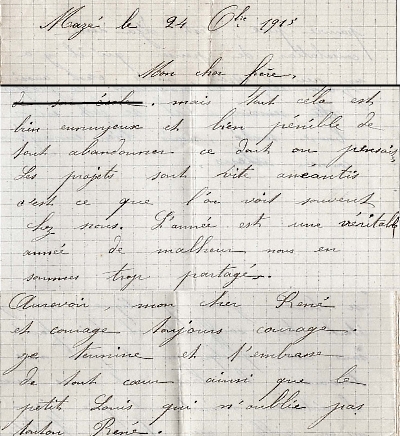 Mazé le 24 8bre 1915
Mon cher frère,
mais tout cela est
bien ennuyeux et bien pénible de
tout abandonner ce dont on pensais
Les projets sont vite anéantis
c'est ce que l'on voit souvent
chez nous. L'année est une véritable
année de malheur nous en
sommes trop partagés.
Aurevoir, mon cher René
et courage toujours courage.
je termine et t'embrasse
de tout cœur ainsi que le
petit Louis qui n'oublie pas
tonton René.